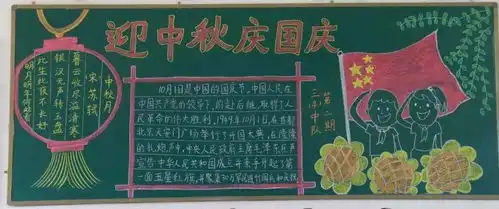 迎中秋庆国庆
中秋月
宋苏轼
暮云收尽溢清寒
银汉无声转玉盘
此生此夜不长好
明月明年何处看
10月1日是中国的国庆节,中国人民在
中国共产党的领导下,前赴后继,取得了人
民革命的伟大胜利,1949年10月1日,在首都
北京天安门广场举行了开国大典,在隆隆
的礼炮声中,中央人民政府主席毛泽东庄严
宣告中华人民共和国成立并亲手升起了第
一面五星红旗,并聚集30万军民进行阅兵和庆祝
第一期
三(4)中队